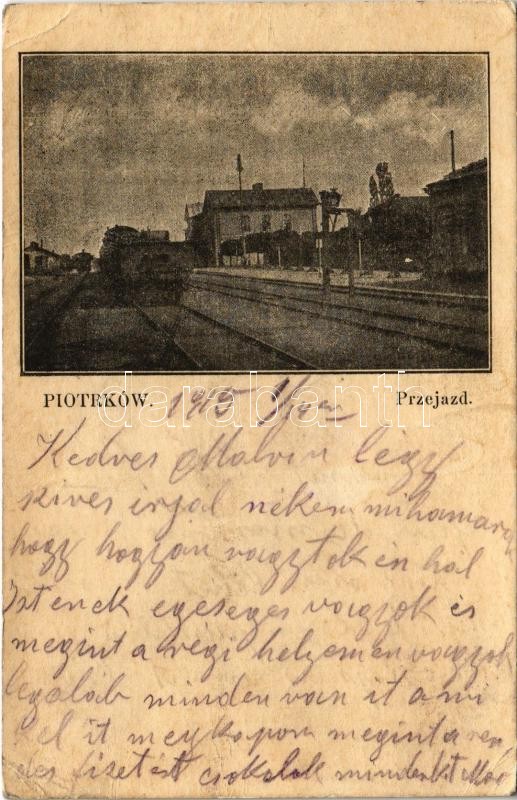 PIOTRKÓW. 1915 Przejazd.
darabanth
Kedves Malvin légy
szives irjal nékem mihamara
hogy hogyan vagytok én hál
Istenek egeseges vagyok és
megint a régi helyemen vagyok
legalab minden van it ami
kel it megkapom megint a ren
des fizetést csokolok mindenkit